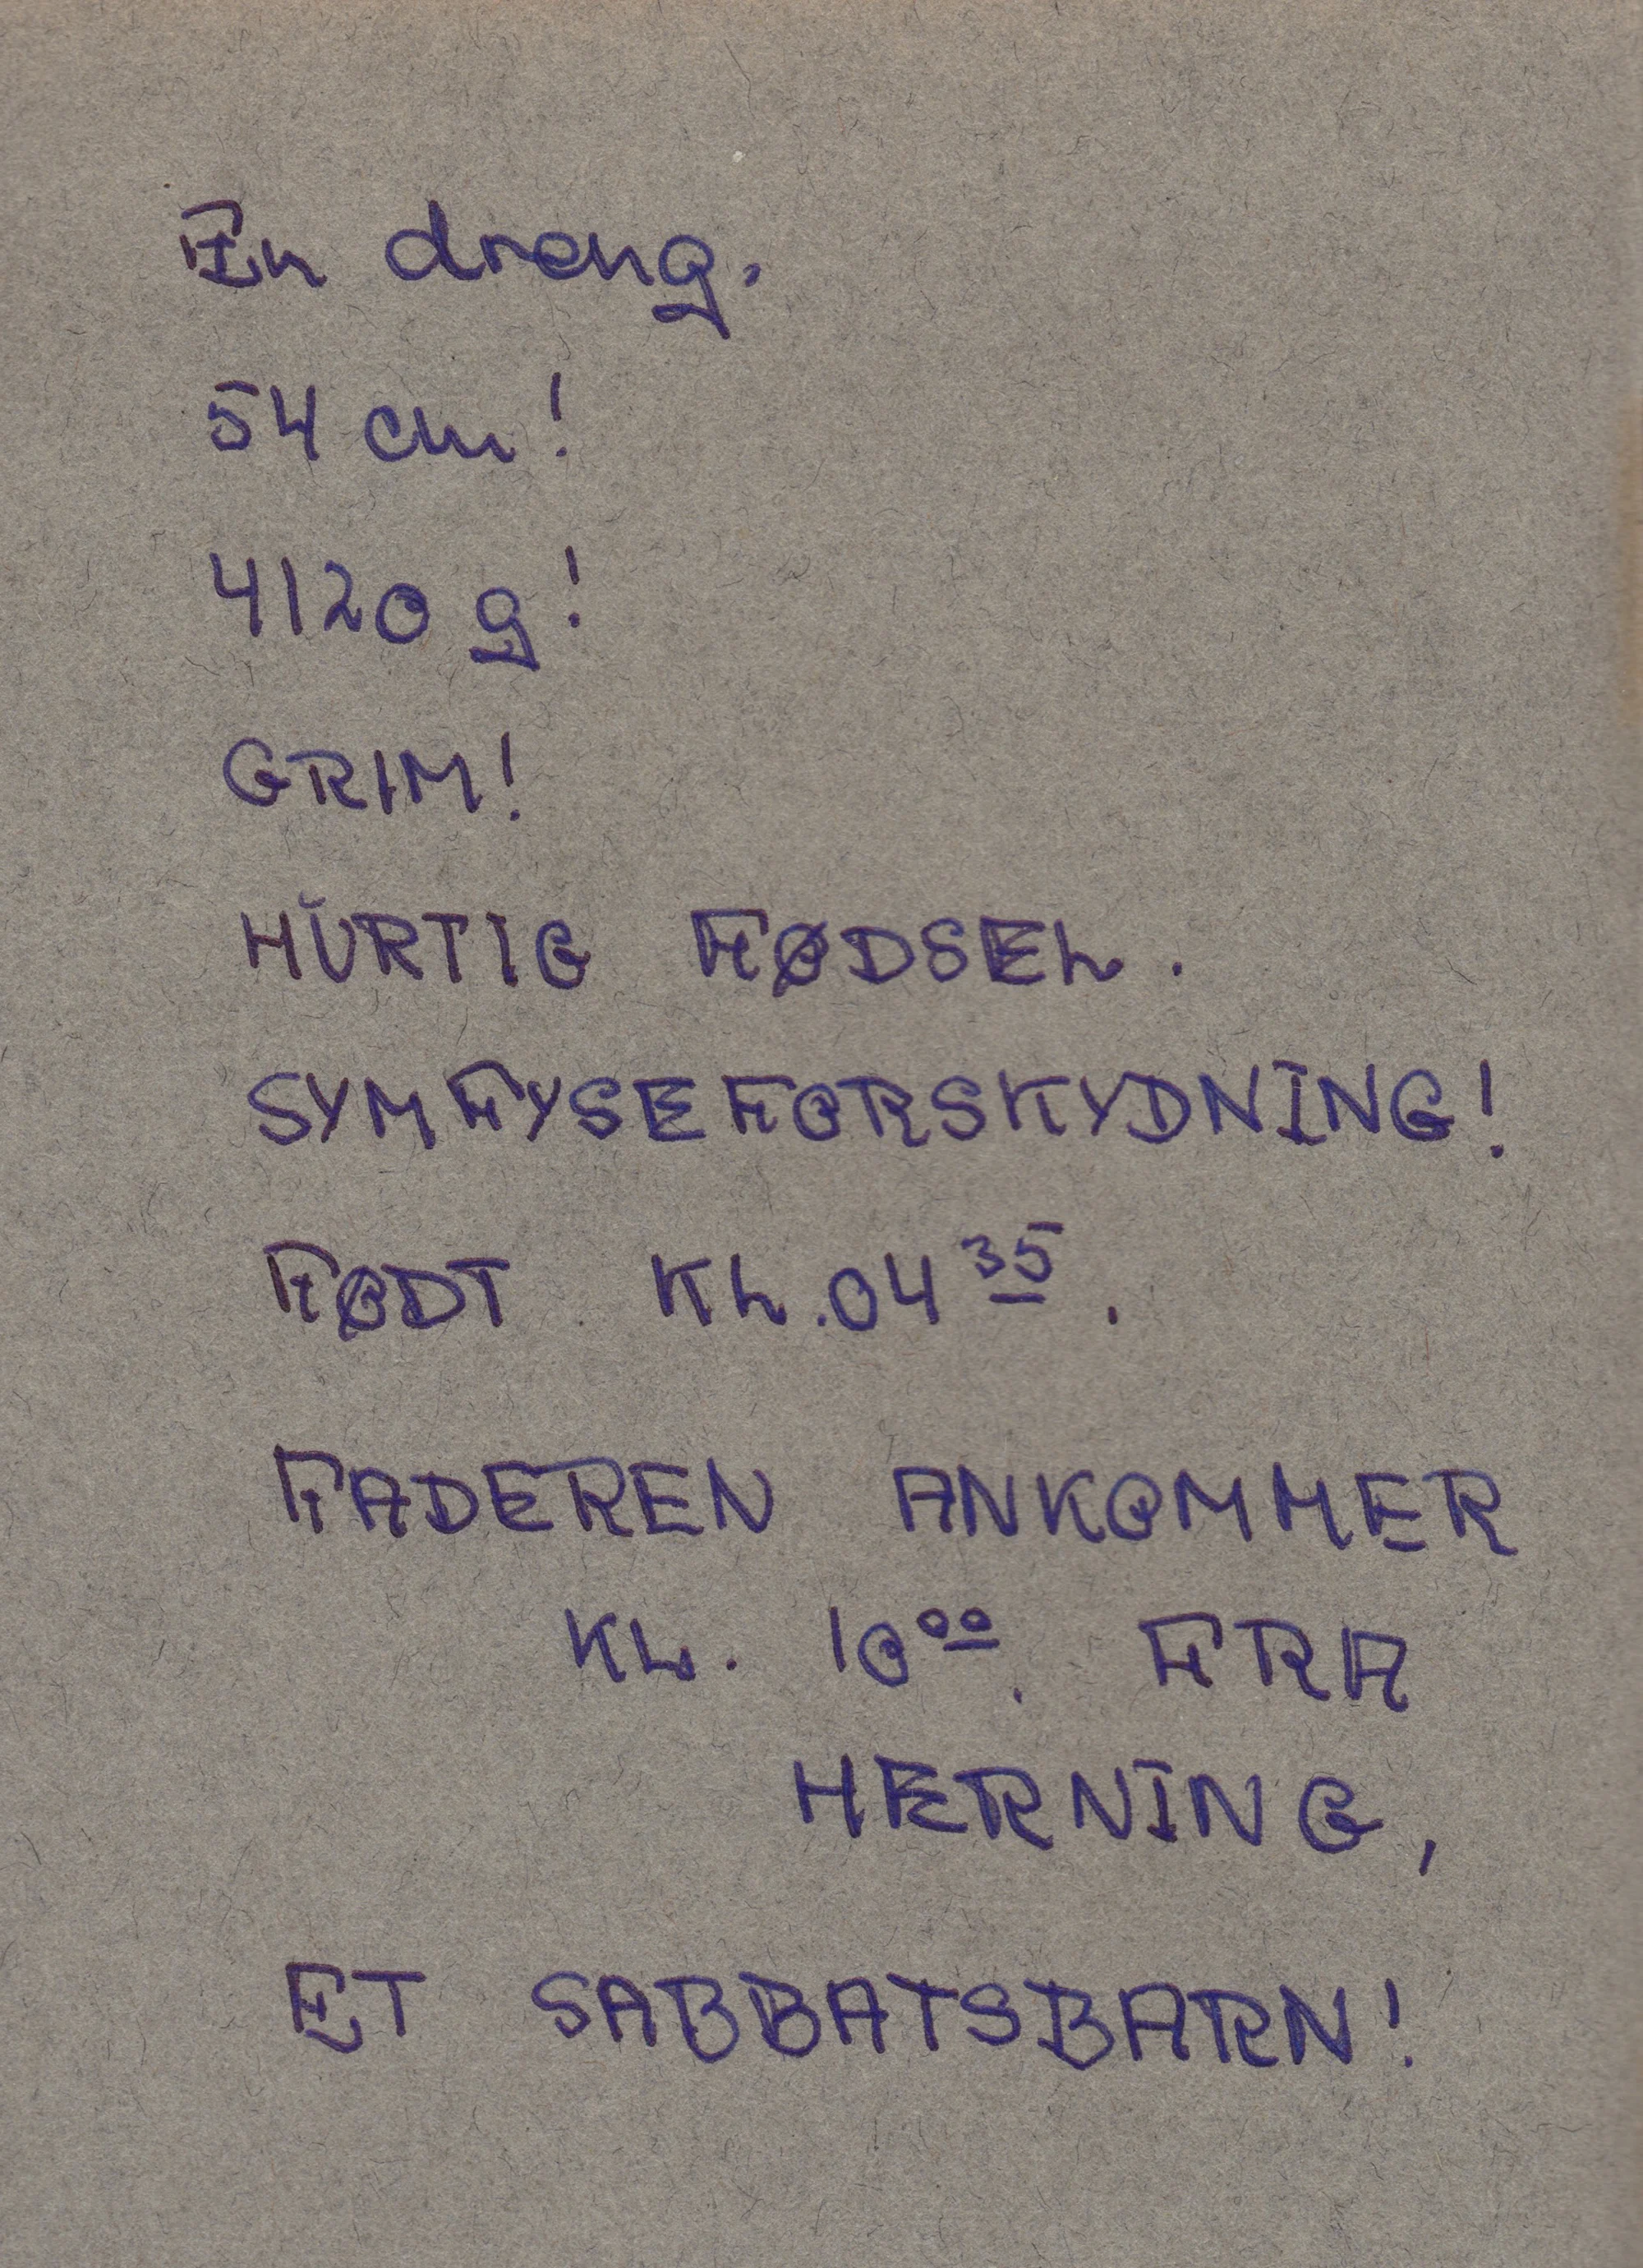 En dreng.
54 cm!
4120 g!
GRIM!
HURTIG FØDSEL.
SYMFYSEFORSKYDNING!
FØDT KL. 04 35.
FADEREN ANKOMMER
KL. 10 00. FRA
HERNING,
ET SABBATSBARN!